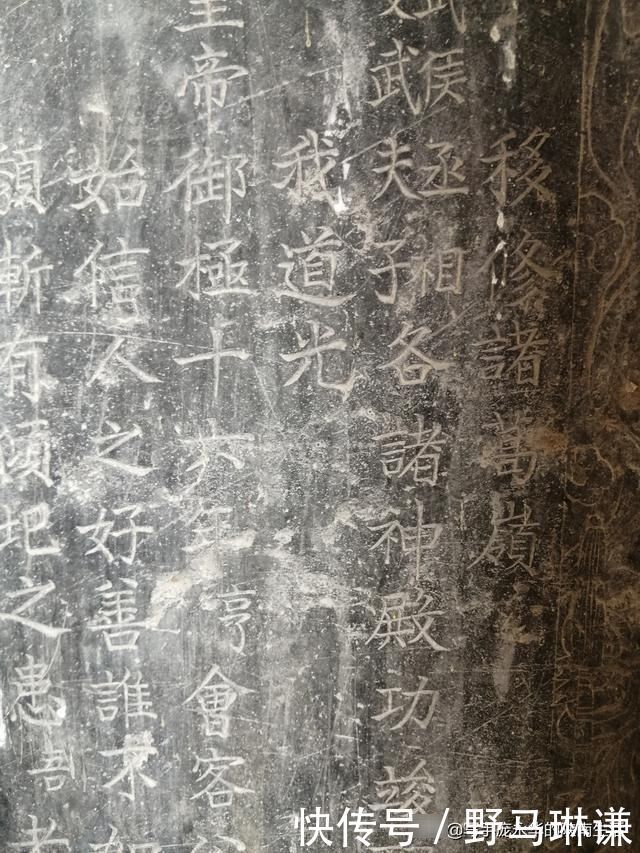 移修諸葛嶺
武侯丞相
武夫子
各諸神殿功竣
我道光
皇帝御極十六年亨會客
始信人之好善誰不
頭漸有傾圯之患吾
快传号 / 野马琳谦